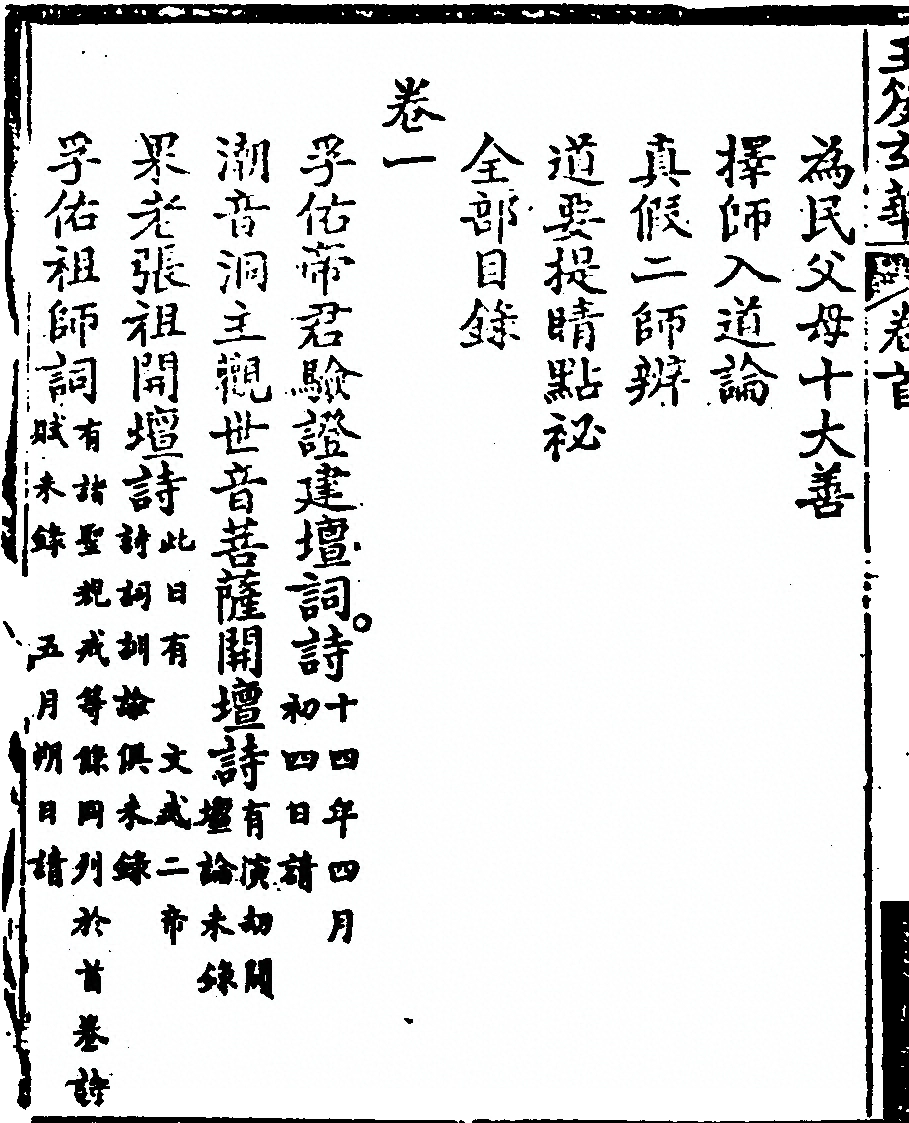 玄 卷首
為民父母十大善
擇師入道論
真假二師辨
道要提睛點祕
全部目錄
卷一
孚佑帝君驗證建壇詞詩 十四年四月
初四日請
潮音洞主觀世音菩薩開壇詩 有演劫開
壇論未錄
果老張祖開壇詩 此日有 文武二帝
詩詞訓論俱未錄
孚佑祖師詞 有諸聖規戒等條同列於首卷詩
賦未錄 五月朔日請